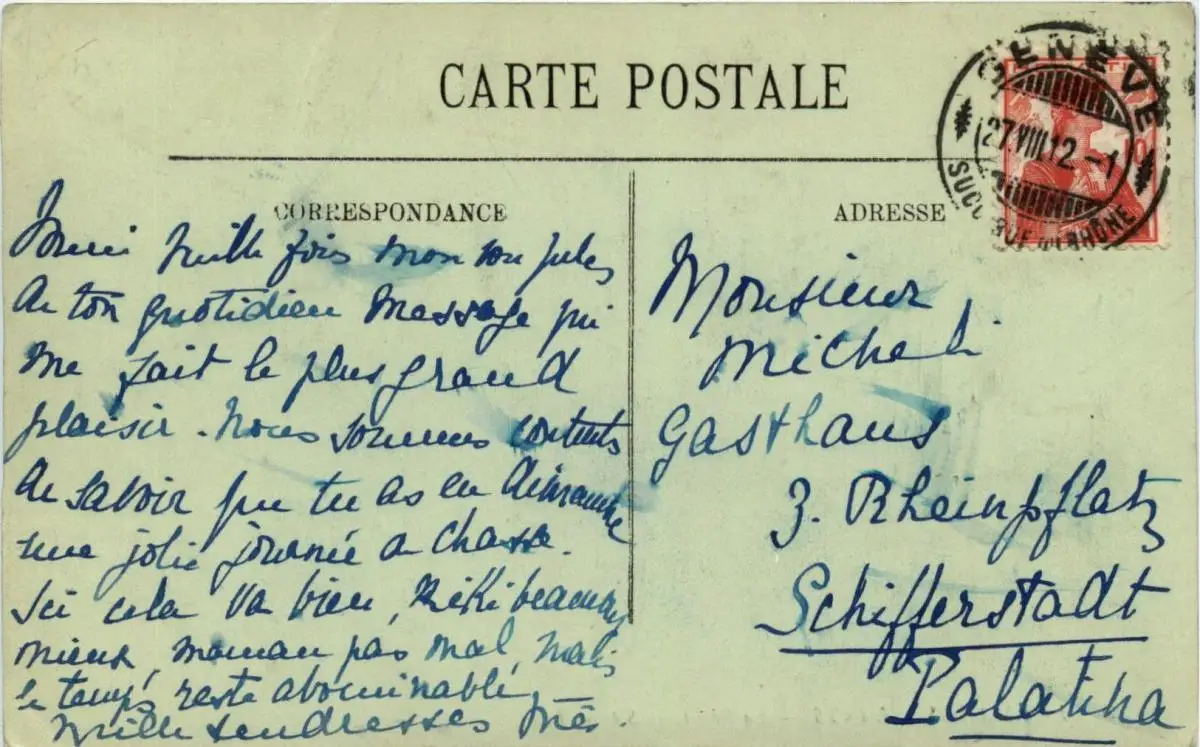 CARTE POSTALE
GENÈVE
27.VIII.12.-1
RUE DU RHÔNE
CORRESPONDANCE
ADRESSE
mille fois mon
de ton quotidien message qui
me fait le plus grand
plaisir. Nous sommes contents
de savoir que tu as eu dimanche
une jolie journée de chasse.
Ici cela va bien, Kiki beaucoup
mieux, maman pas mal, mais
le temps reste abominable
Mille tendresses
Monsieur
Micheli
Gasthaus
z. Rheinpfalz
Schifferstadt
Palatina